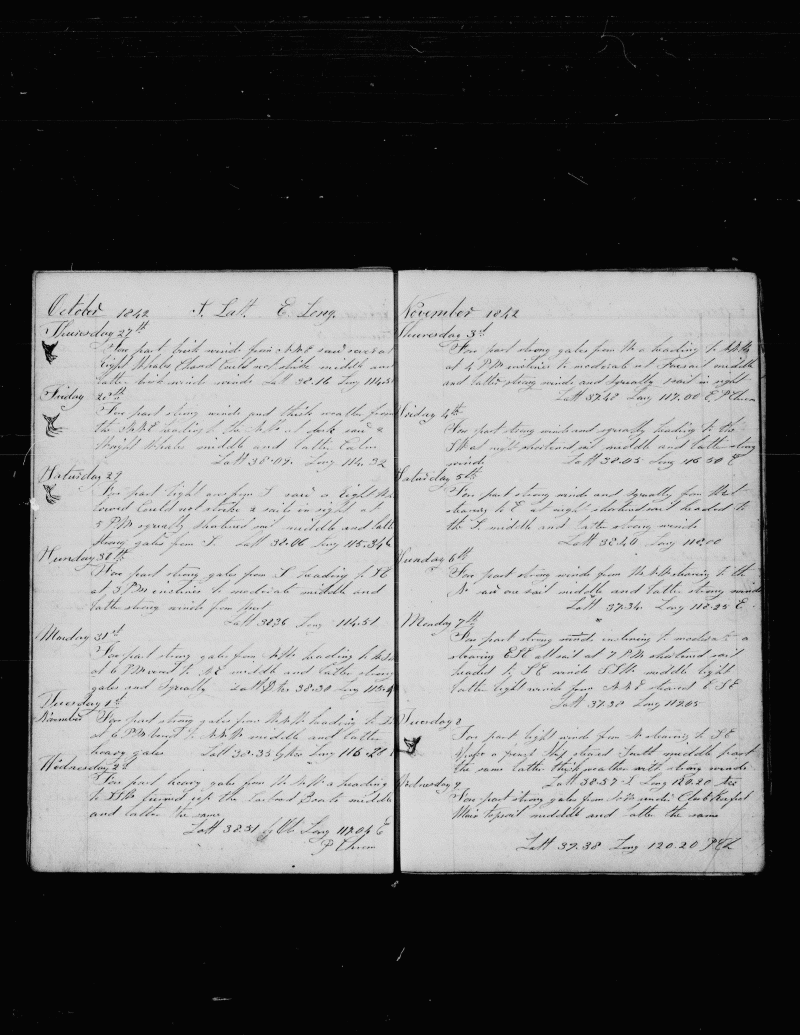 October 1842 S. Latt. E Long.
Thursday 27th
Fore part brisk winds from NNE saw several
Right Whales Chased Could not strike middle and
latter brisk winds Latt 38.16 Long 114.51
Friday 28th
Fore part strong winds and thick weather from
the NNE heading to the at dark saw a
Wright Whale middle and latter Calm
Latt 38.09 Long 114.32
Saturday 29
Fore part light airs from S saw a Right Wh
lowered Could not strike 2 sails in sight at
5 PM squally shortened sail middle and latter
Heavy gales from S. Latt 38.06 Long 115.34
Sunday 30th
Fore part strong gales from S heading to SE
at 3 PM inclines to moderate middle and
latter strong winds from
Latt 38.36 Long 114.51
Monday 31st
Fore part strong gales from heading to
at 6 PM middle and latter strong
gales and Squally Latt 38.30 Long 115
Tuesday 1st
November Fore part strong gales from heading to
at 6 PM to middle and latter
heavy gales Latt 38.35 Long 116.20
Wednesday 2d
Fore part heavy gales from heading
to up the Larboard Boats middle
and latter the same
Latt 38.31 Long 117.04 E
November 1842
Thursday 3d
Fore part strong gales from heading to
at 4 PM inclines to moderate at sail middle
and latter strong winds and squally 1 sail in sight
Latt 37.48 Long 117.00 E
Friday 4th
Fore part strong winds and squally heading to the
at night shortened sail middle and latter strong
winds Latt 38.05 Long 50 E
Saturday 5th
Fore part strong winds and squally from
to E at night shortened sail headed to
the S. middle and latter strong winds
Latt 38.40 Long 118.10
Sunday 6th
Fore part strong winds from to the
N saw one sail middle and latter strong winds
Latt 37.34 Long 118.25 E
Monday 7th
Fore part strong winds inclining to moderate
steering ESE all sail at 7 PM shortened sail
headed by SE winds middle light
latter light winds from NNE steared E SE
Latt 37.38 Long 119.05
Tuesday 8
Fore part light winds from N steering to SE
a french Ship steared South middle part
the same latter thick weather with strong winds
Wednesday 9 Latt 38.37 S Long 120.20
Fore part strong gales from winds Close Reefed
Main topsail middle and latter the same
Latt 37.38 Long 120.20